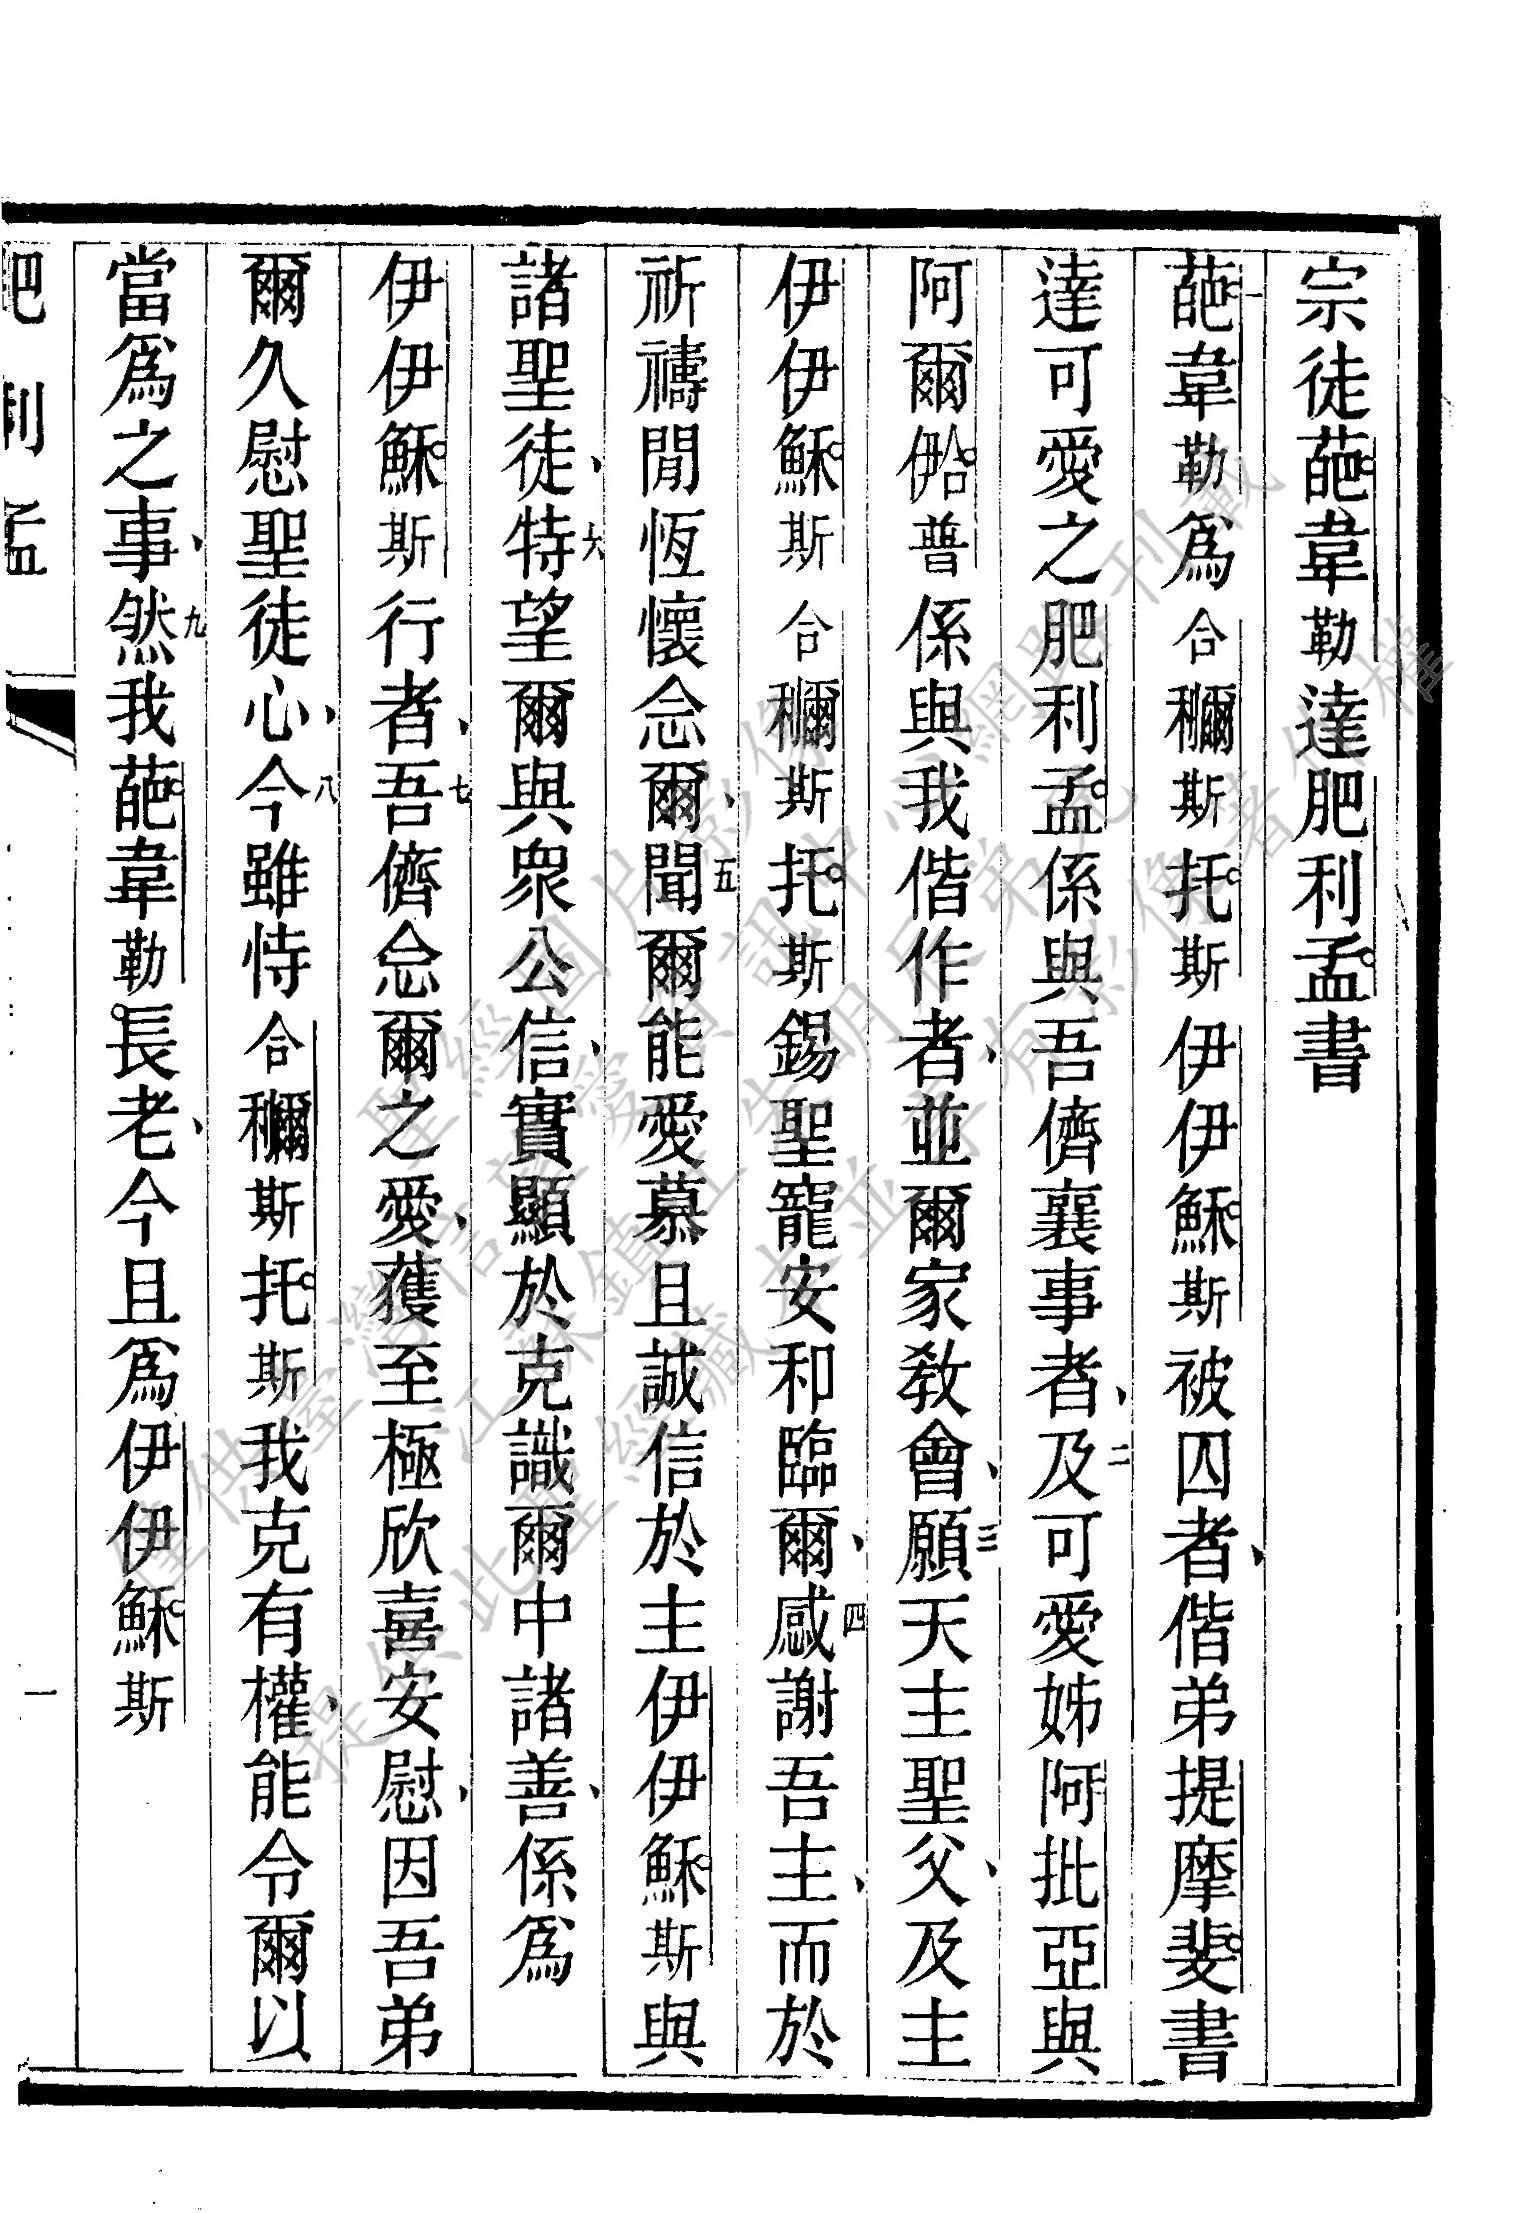 宗徒葩韋勒達肥利孟書
一葩韋勒爲合穪斯托斯伊伊穌斯被囚者、偕弟提摩斐書
達可愛之肥利孟係與吾儕襄事者、二及可愛姊阿批亞與
阿爾伊合普係與我偕作者、並爾家教會、三願天主聖父、及主
伊伊穌斯合穪斯托斯錫聖寵安和臨爾、四感謝吾主、而於
祈禱閒恆懷念爾、五聞爾能愛慕且誠信於主伊伊穌斯與
諸聖徒、六特望爾與衆公信、實顯於克識爾中諸善、係爲
伊伊穌斯行者、七吾儕念爾之愛、獲至極欣喜安慰、因吾弟
爾久慰聖徒心、八今雖恃合穪斯托斯我克有權、能令爾以
當爲之事、九然我葩韋勒長老、今且爲伊伊穌斯
肥利孟
一